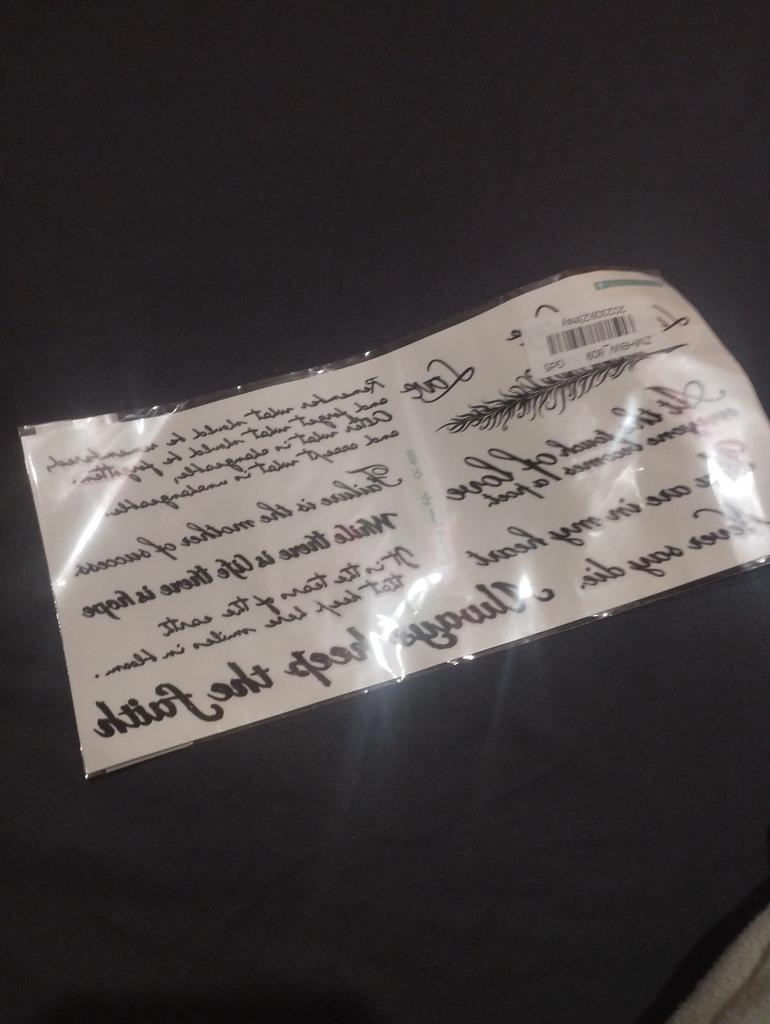 Love
Remember what should be remembered,
and forget what should be forgotten.
Alter what is changeable,
and accept what is unchangeable.
Failure is the mother of success.
While there is life there is hope
It is the tears of the earth
that keep here smiles in bloom.
Always keep the faith
At the touch of love
everyone becomes a poet
are in my heart
Never say die.
ZWHBW_809 Gd5
20230823hwy